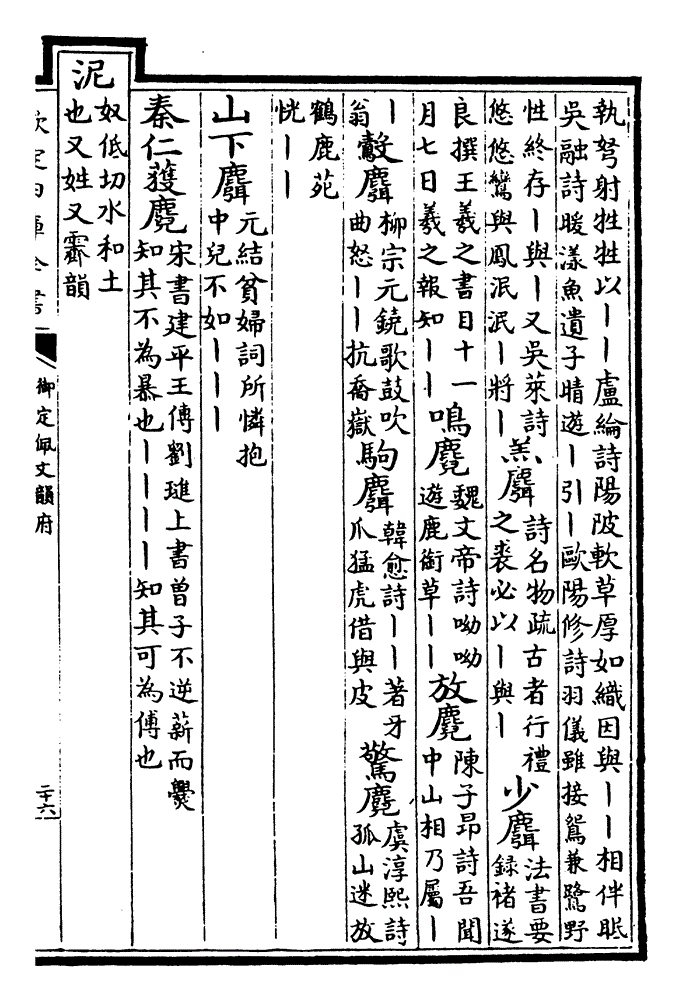 執弩射牲牲以丨丨盧綸詩陽陂軟草厚如織因與丨丨相伴眠
吳融詩暖漾魚遺子晴遊丨引丨歐陽修詩羽儀雖接鴛兼鷺野
性終存丨與丨又吳萊詩
悠悠鸞與鳳泯泯丨將丨
羔麛
詩名物疏古者行禮
之裘必以丨與丨
少麛
法書要
録褚遂
良撰王羲之書目十一
月七日羲之報知丨丨
鳴麑
魏文帝詩呦呦
遊鹿銜草丨丨
放麑
陳子昂詩吾聞
中山相乃屬丨
丨
翁
鷇麛
柳宗元鐃歌鼓吹
曲怒丨丨抗喬嶽
駒麛
韓愈詩丨丨著牙
爪猛虎借與皮
驚麑
虞淳熙詩
孤山迷放
鶴鹿苑
恍丨丨
山下麛
元結貧婦詞所憐抱
中兒不如丨丨丨
秦仁獲麑
宋書建平王傳劉璡上書曽子不逆薪而爨
知其不為暴也丨丨丨丨知其可為傅也
泥
奴低切水和土
也又姓又霽韻
欽定四庫全書
御定佩文韻府
二十六